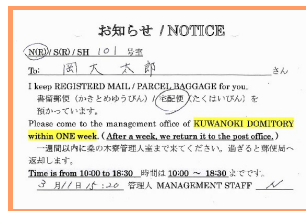 お知らせ / NOTICE
N(R)/ S(R) / SH 101 号室
To: 岡大太郎 さん
I keep REGISTERD MAIL / PARCEL BAGGAGE for you.
書留郵便（かきとめゆうびん）/ 宅配便（たくはいびん）を
預かっています。
Please come to the management office of KUWANOKI DOMITORY
within ONE week. ( After a week, we return it to the post office. )
一週間以内に桑の木寮管理人室まで来てください。過ぎると郵便局へ
返却します。
Time is from 10:00 to 18:30 時間は 10:00 ～ 18:30 までです。
3 月 11 日 15:20 管理人 MANAGEMENT STAFF N